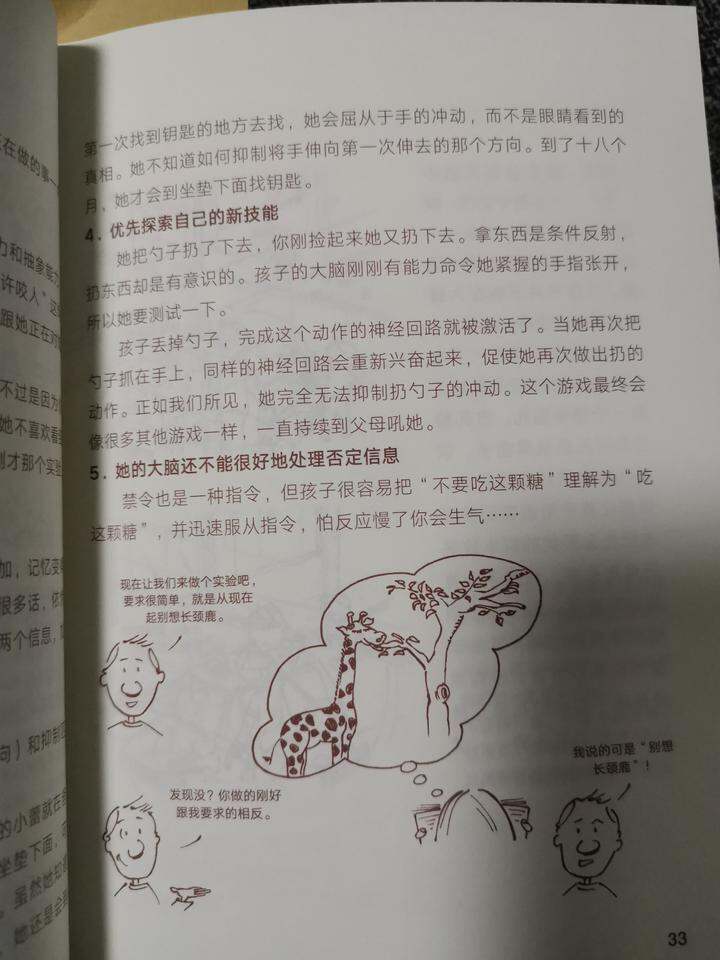 在做的事一
力和抽象能力
许咬人”这
跟她正在对
不过是因为
她不喜欢看
刚才那个实验
加，记忆变
很多话，依
两个信息，
向）和抑制
的小蕾就在
坐垫下面，
。虽然她知
她还是会
第一次找到钥匙的地方去找，她会屈从于手的冲动，而不是眼睛看到的
真相。她不知道如何抑制将手伸向第一次伸去的那个方向。到了十八个
月，她才会到坐垫下面找钥匙。
4．优先探索自己的新技能
她把勺子扔了下去，你刚捡起来她又扔下去。拿东西是条件反射，
扔东西却是有意识的。孩子的大脑刚刚有能力命令她紧握的手指张开，
所以她要测试一下。
孩子丢掉勺子，完成这个动作的神经回路就被激活了。当她再次把
勺子抓在手上，同样的神经回路会重新兴奋起来，促使她再次做出扔的
动作。正如我们所见，她完全无法抑制扔勺子的冲动。这个游戏最终会
像很多其他游戏一样，一直持续到父母吼她。
5．她的大脑还不能很好地处理否定信息
禁令也是一种指令，但孩子很容易把“不要吃这颗糖”理解为“吃
这颗糖”，并迅速服从指令，怕反应慢了你会生气……
现在让我们来做个实验吧，
要求很简单，就是从现在
起别想长颈鹿。
我说的可是“别想
长颈鹿”！
发现没？你做的刚好
跟我要求的相反。
33